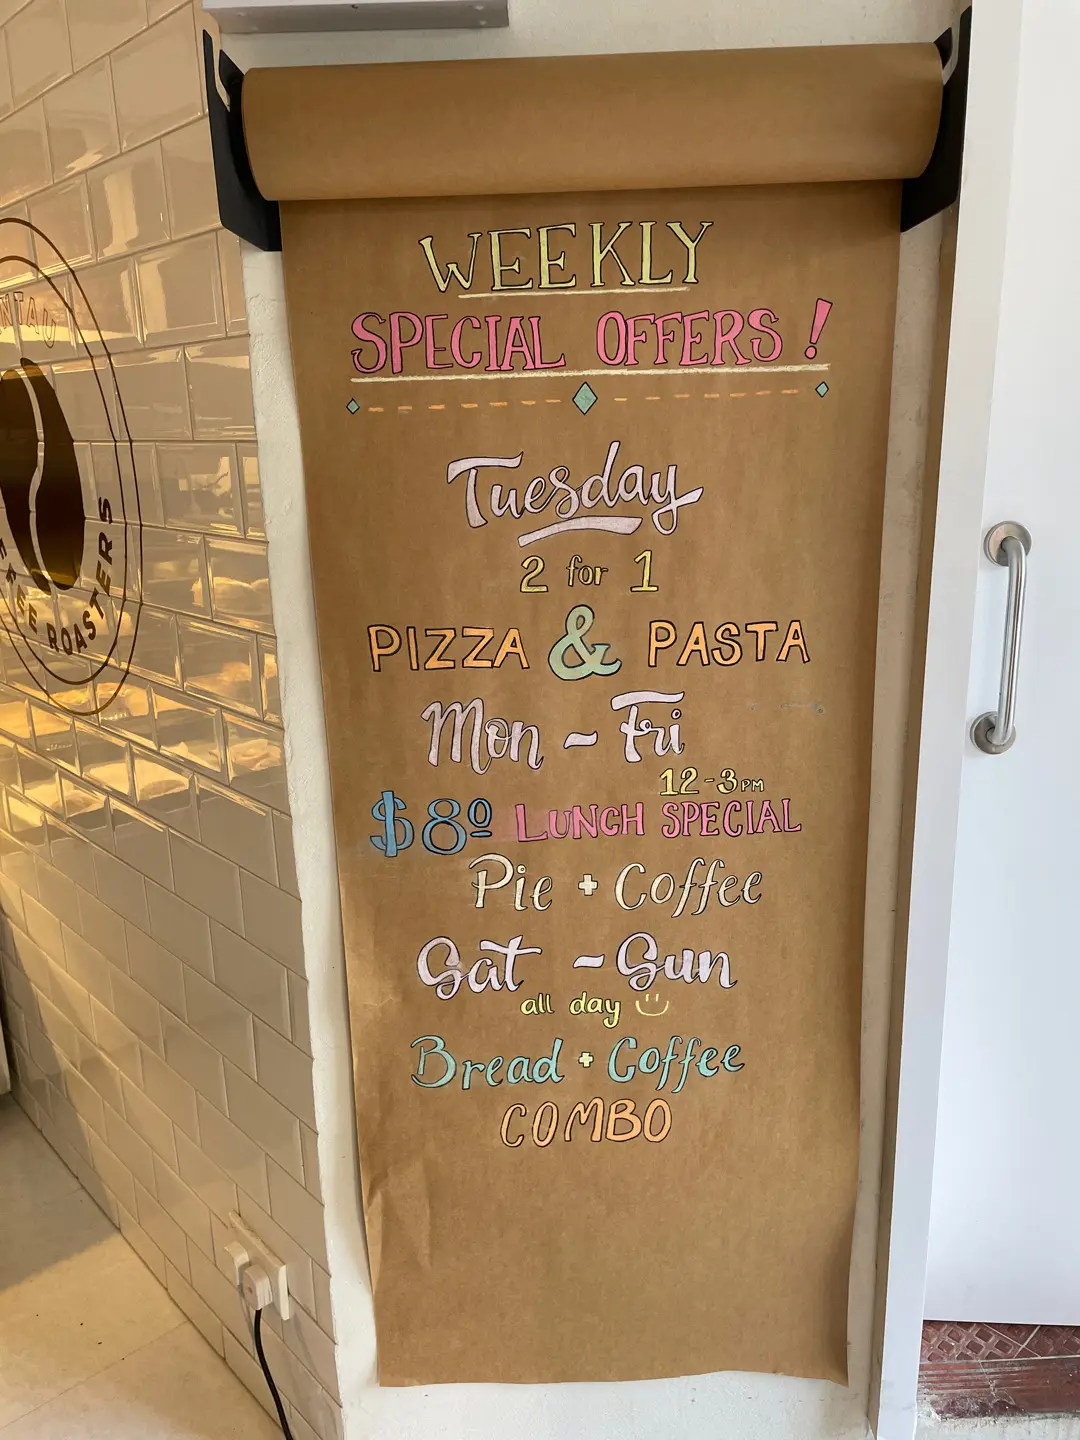 WEEKLY
SPECIAL OFFERS!
Tuesday
2 for 1
PIZZA & PASTA
Mon ~ Fri
12-3PM
$80 LUNCH SPECIAL
Pie + Coffee
Sat ~ Sun
all day
Bread + Coffee
COMBO
ROASTERS